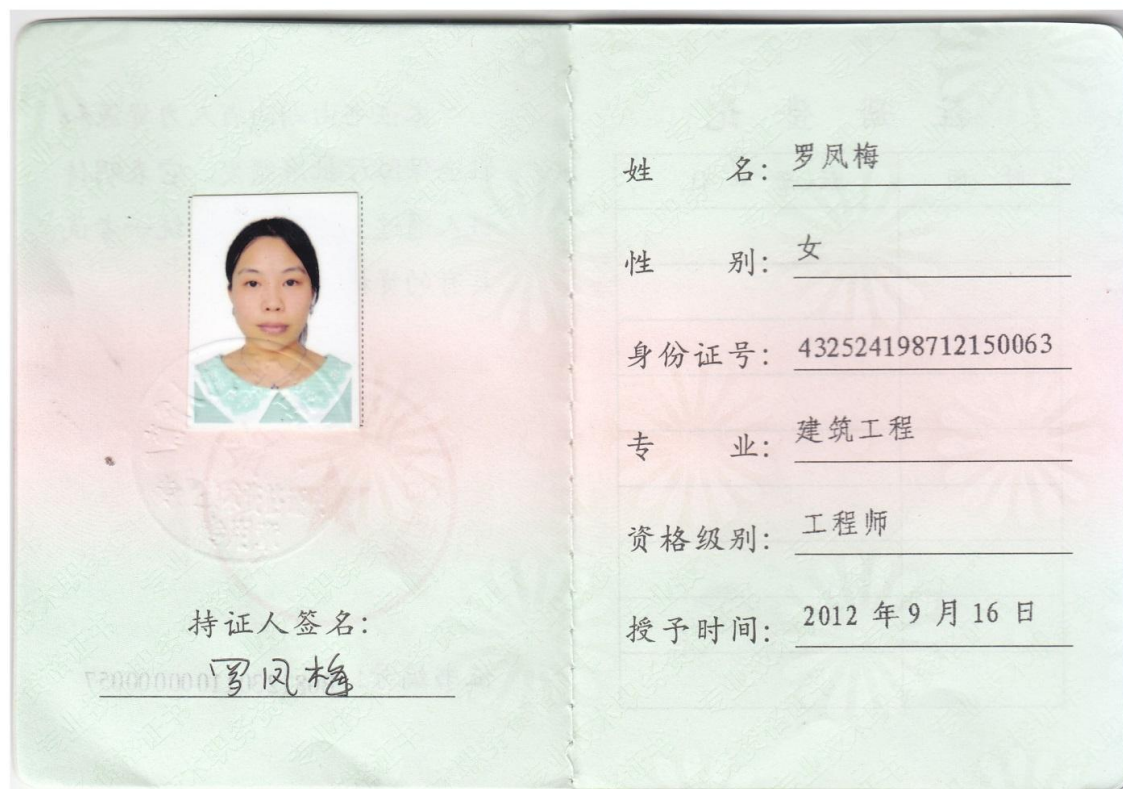 持证人签名：
罗凤梅
姓 名：罗凤梅
性 别：女
身份证号：432524198712150063
专 业：建筑工程
资格级别：工程师
授予时间：2012 年 9 月 16 日